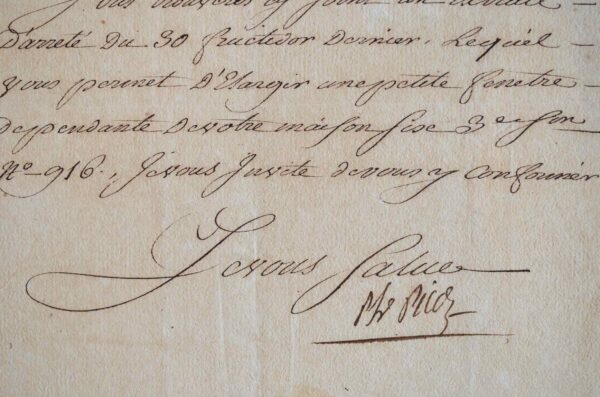 Vous trouveres cy joint un
D'arreté du 30 fructidor Dernier. Lequel
vous permet D'Elargir une petite fenetre
dependante De votre maison sise 3e Son
N° 916., Je vous Invite de vous y conformer
Je vous Salue